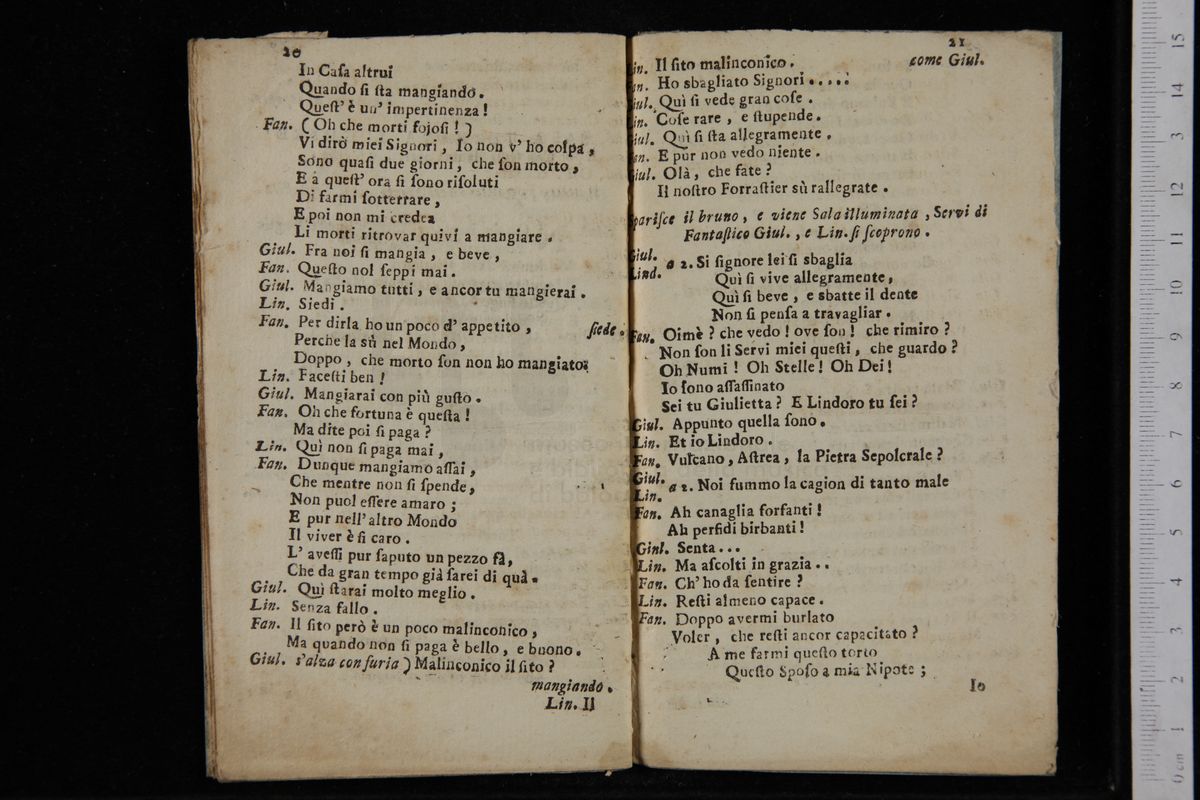 20
In Caſa altrui
Quando ſi ſta mangiando.
Queſt' è un' impertinenza!
Fan. (Oh che morti fojoſi!)
Vi dirò miei Signori, Io non v' ho colpa,
Sono quaſi due giorni, che ſon morto,
E a queſt' ora ſi ſono riſoluti
Di farmi ſotterrare,
E poi non mi credea
Li morti ritrovar quivi a mangiare.
Giul. Fra noi ſi mangia, e beve,
Fan. Queſto nol ſeppi mai.
Giul. Mangiamo tutti, e ancor tu mangierai.
Lin. Siedi.
Fan. Per dirla ho un poco d' appetito, ſiede.
Perche la sù nel Mondo,
Doppo, che morto ſon non ho mangiato;
Lin. Faceſti ben!
Giul. Mangiarai con più guſto.
Fan. Oh che fortuna è queſta!
Ma dite poi ſi paga?
Lin. Quì non ſi paga mai,
Fan. Dunque mangiamo aſſai,
Che mentre non ſi ſpende,
Non puol eſſere amaro;
E pur nell' altro Mondo
Il viver è ſi caro.
L' aveſſi pur ſaputo un pezzo fà,
Che da gran tempo già ſarei di quà.
Giul. Quì ſtarai molto meglio.
Lin. Senza fallo.
Fan. Il ſito però è un poco malinconico,
Ma quando non ſi paga è bello, e buono.
Giul. s'alza con furia) Malinconico il ſito?
mangiando.
Lin. Il
21
Lin. Il ſito malinconico. come Giul.
Fan. Ho sbagliato Signori.....
Giul. Quì ſi vede gran coſe.
Lin. Coſe rare, e ſtupende.
Giul. Quì ſi ſta allegramente.
Fan. E pur non vedo niente.
Giul. Olà, che fate?
Il noſtro Forraſtier sù rallegrate.
Spariſce il bruno, e viene Sala illuminata, Servi di
Fantaſtico Giul., e Lin. ſi ſcoprono.
Giul.
Lind. a 2. Si ſignore lei ſi sbaglia
Quì ſi vive allegramente,
Quì ſi beve, e sbatte il dente
Non ſi penſa a travagliar.
Fan. Oimè? che vedo! ove ſon! che rimiro?
Non ſon li Servi miei queſti, che guardo?
Oh Numi! Oh Stelle! Oh Dei!
Io ſono aſſaſſinato
Sei tu Giulietta? E Lindoro tu ſei?
Giul. Appunto quella ſono.
Lin. Et io Lindoro.
Fan. Vulcano, Aſtrea, la Pietra Sepolcrale?
Giul.
Lin. a 2. Noi fummo la cagion di tanto male
Fan. Ah canaglia forfanti!
Ah perfidi birbanti!
Giul. Senta...
Lin. Ma aſcolti in grazia..
Fan. Ch' ho da ſentire?
Lin. Reſti almeno capace.
Fan. Doppo avermi burlato
Voler, che reſti ancor capacitato?
A me farmi queſto torto
Queſto Spoſo a mia Nipote;
Io